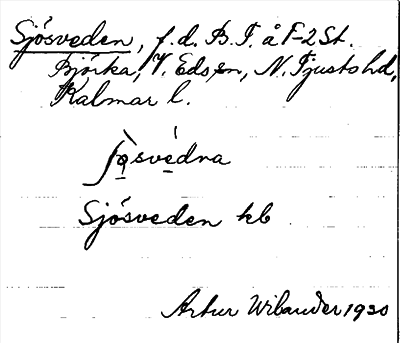 Sjösveden, f.d. B.T. å F-2 St.
Björka, V. Eds sn, N. Tjusts hd,
Kalmar l.
ʃọ̀svẹ́dna
Sjösveden kb
Artur Wilander 1930